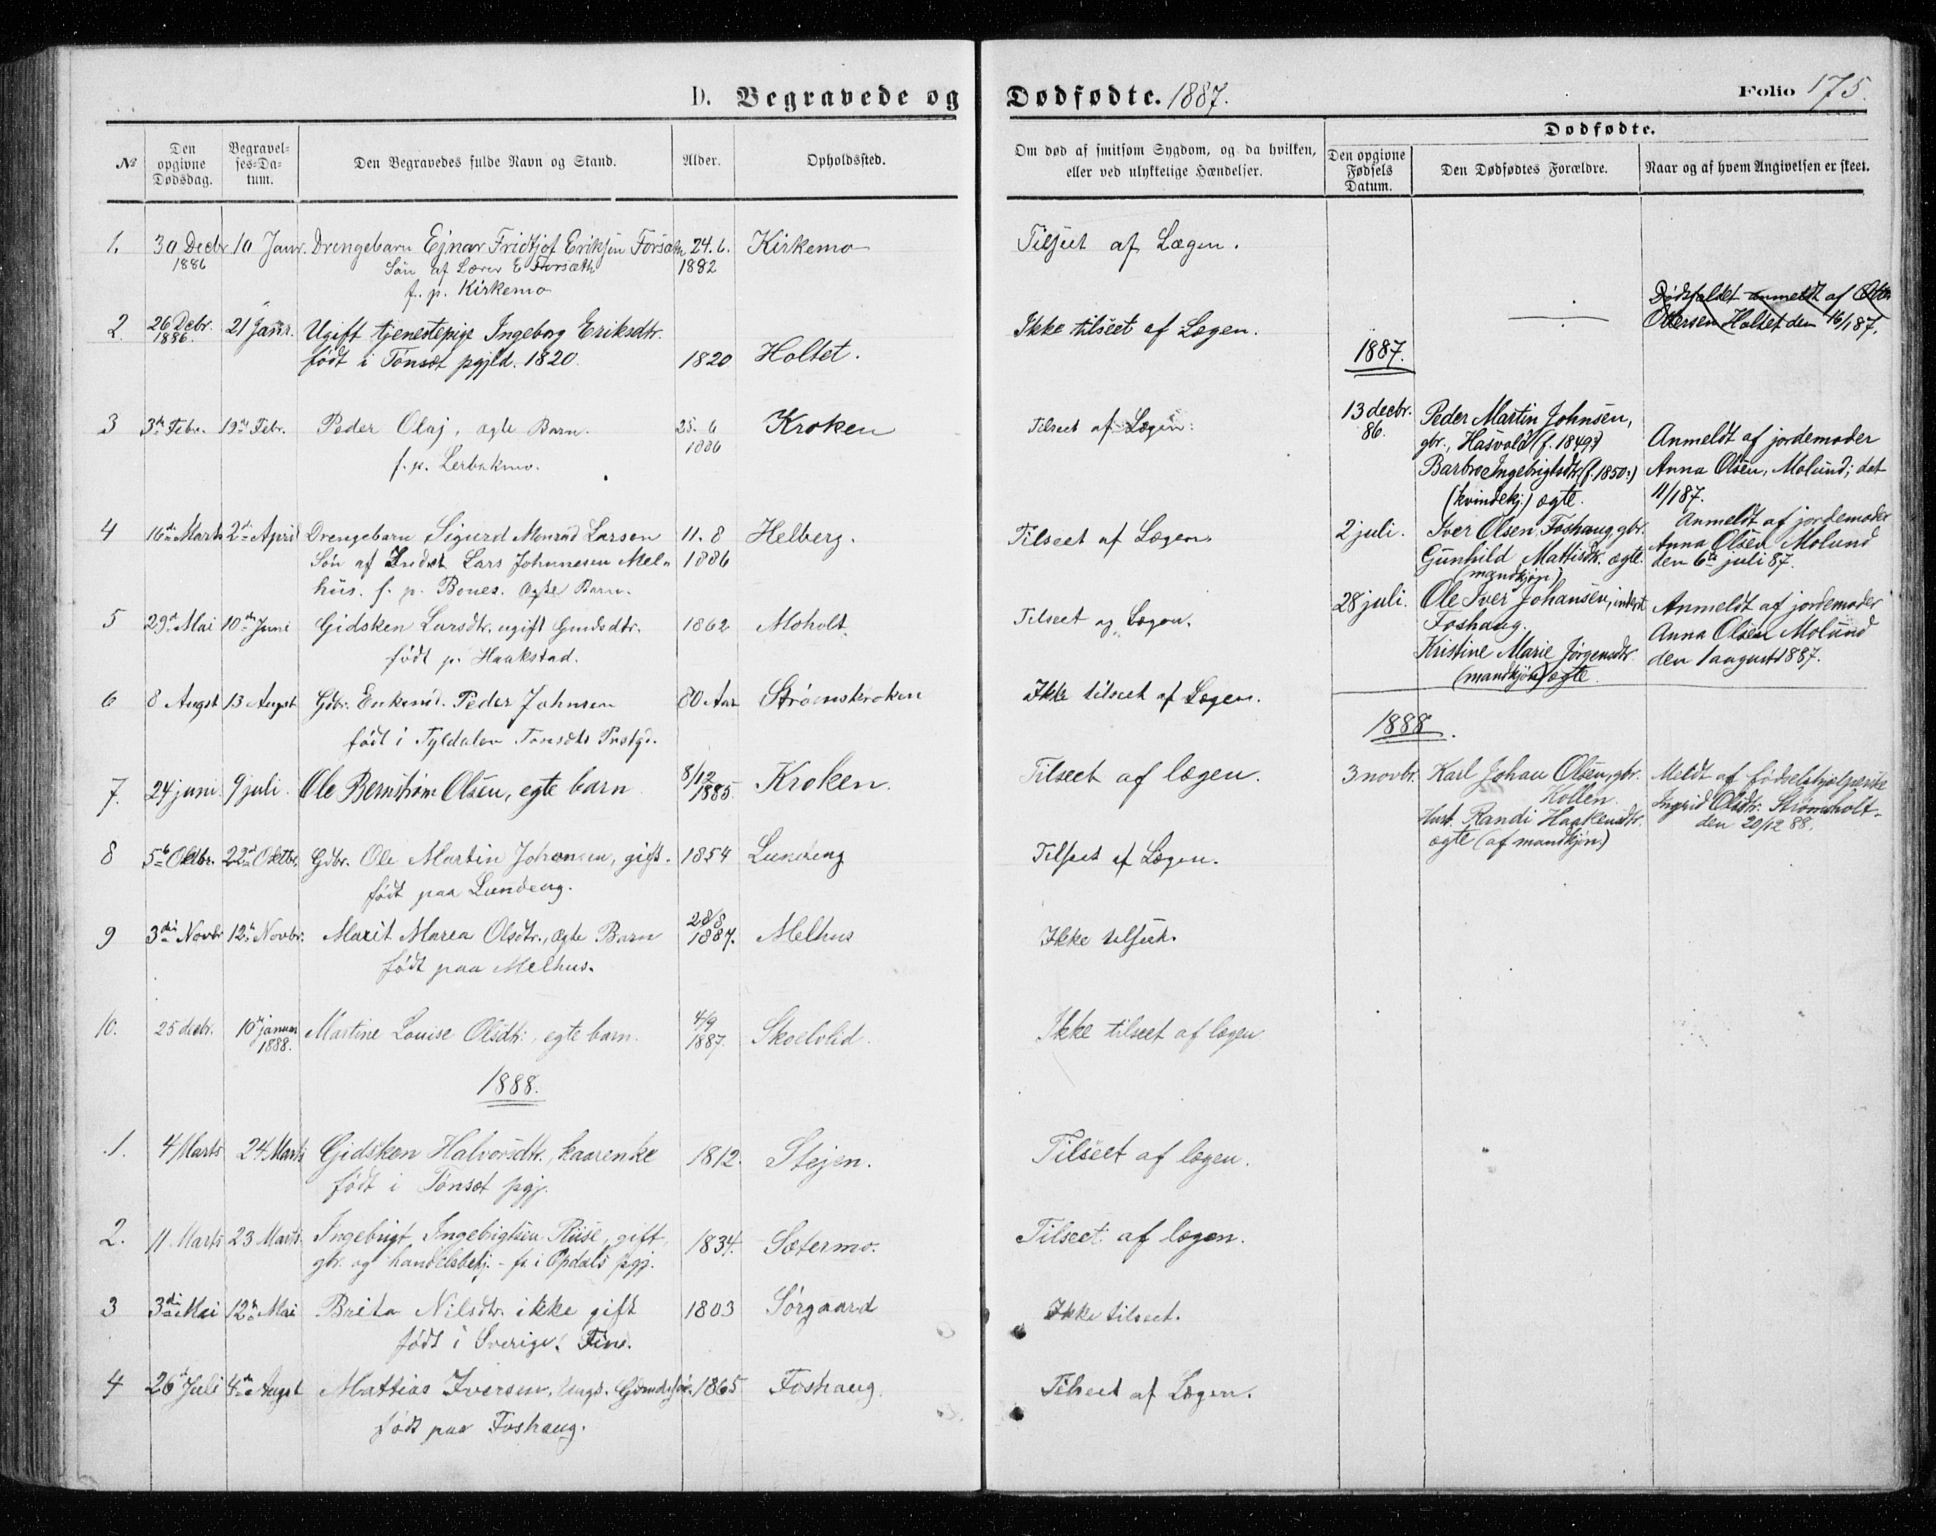 D. Begravede og Dødfødte. 1887.
Folio 175.
№
Den opgivne Dødsdag.
Begravelses-Datum.
Den Begravedes fulde Navn og Stand.
Alder.
Opholdssted.
Om død af smitsom Sygdom, og da hvilken, eller ved ulykkelige Hændelser.
Dødfødte.
Den opgivne Fødsels Datum.
Den Dødfødtes Forældre.
Naar og af hvem Angivelsen er skeet.
1. 30 Decbr 10 Janr. Drengebarn Ejnar Fridtjof Eriksen Forsæth 24. 6. Kirkemo Tilseet af Lægen.
1886 Søn af Lærer E Forsæth 1882
f. p. Kirkemo
2. 26 Debr. 21 Janr. Ugift tjenestepige Ingeborg Eriksdtr. Ikke tilseet af Lægen.
1886. født i Tønset pgjld. 1820. 1820 Holtet.
3 3die Febr. 19de Febr. Peder Olaj, ægte Barn. 25. 6 Kroken Tilseet af Lægen.
f. p. Lerbakmo. 1886
4 16de Marts 2den April Drengebarn Sigurd Monrad Larsen 11. 8 Helberg. Tilseet af Lægen.
Søn af Inderst Lars Johannesen Mel- 1886
hus. f. p. Bones. Ægte Barn.
5 29de Mai 10de Juni Gidsken Larsdtr. ugift Gmdsdtr. 1862 Moholt. Tilseet af Lægen.
født p. Haakstad.
6 8 Augst 13 Augst Gdbr. Enkemd. Peder Johnsen 80 Aar Strømskroken Ikke tilseet af Lægen.
født i Tyldalen Tønsets Prstgd.
7. 24 juni 9 juli. Ole Bernstrøm Olsen, egte barn 8/12 1885. Kroken. Tilseet af lægen.
8 5te Oktbr. 22de Oktbr. Gdbr. Ole Martin Johansen, gift. 1854 Lundeng Tilseet af Lægen.
født paa Lundeng.
9 3die Novbr 12te Novbr. Marit Marea Olsdtr., ægte Barn 28/8 1887. Melhus Ikke tilseet.
født paa Melhus.
10. 25 decbr. 10de januar 1888. Martine Louise Olsdtr., egte barn. 4/9 1887. Skoelvlid. Ikke tilseet af lægen
1888.
1. 4 Marts 24 Marts Gidsken Halvorsdtr., kaarenke 1812. Stejen. Tilseet af lægen.
født i Tønset pgj.
2. 11 Marts 23 Marts. Ingebrigt Ingebrigtsen Riise, gift, 1834. Sætermo. Tilseet af lægen.
gbr. og handelsbetj. - f. i Opdals pgj.
3 3die Mai 12te Mai Brita Nilsdtr. ikke gift 1803 Sørgaard Ikke tilseet.
født i Sverige. Fin.
4 26de Juli 4de Augst Mattias Iversen, Ungk. Gbmdssøn 1865 Foshaug. Tilseet af Lægen.
født paa Foshaug.
Dødsfaldet anmeldt af Otter
Ottersen Holtet den 16/1 87.
1887.
13 decbr. 86. Peder Martin Johnsen,
gbr., Hasvold (f. 1849)
Barbro Ingebrigtsdtr. (f. 1850:)
(kvindekj.) ægte.
Anmeldt af jordemoder
Anna Olsen, Molund; det
11/1 87.
2 juli. Iver Olsen, Foshaug, gbr.
Gunhild Mattisdtr. ægte.
(mandkjøn)
Anmeldt af jordemoder
Anna Olsen Molund
den 6te juli 87.
28 juli. Ole Iver Johansen, inderst
Foshaug.
Kristine Marie Jørgensdtr.
(mandkjøn) ægte.
Anmeldt af jordemoder
Anna Olsen Molund
den 1 august 1887.
1888.
3 novbr. Karl Johan Olsen, gbr.
Kollen.
Hust. Randi Haakensdtr.
ægte (af mandkjøn.)
Meldt af fødselshjælperske
Ingrid Olsdtr. Strømholt
den 20/12 88.